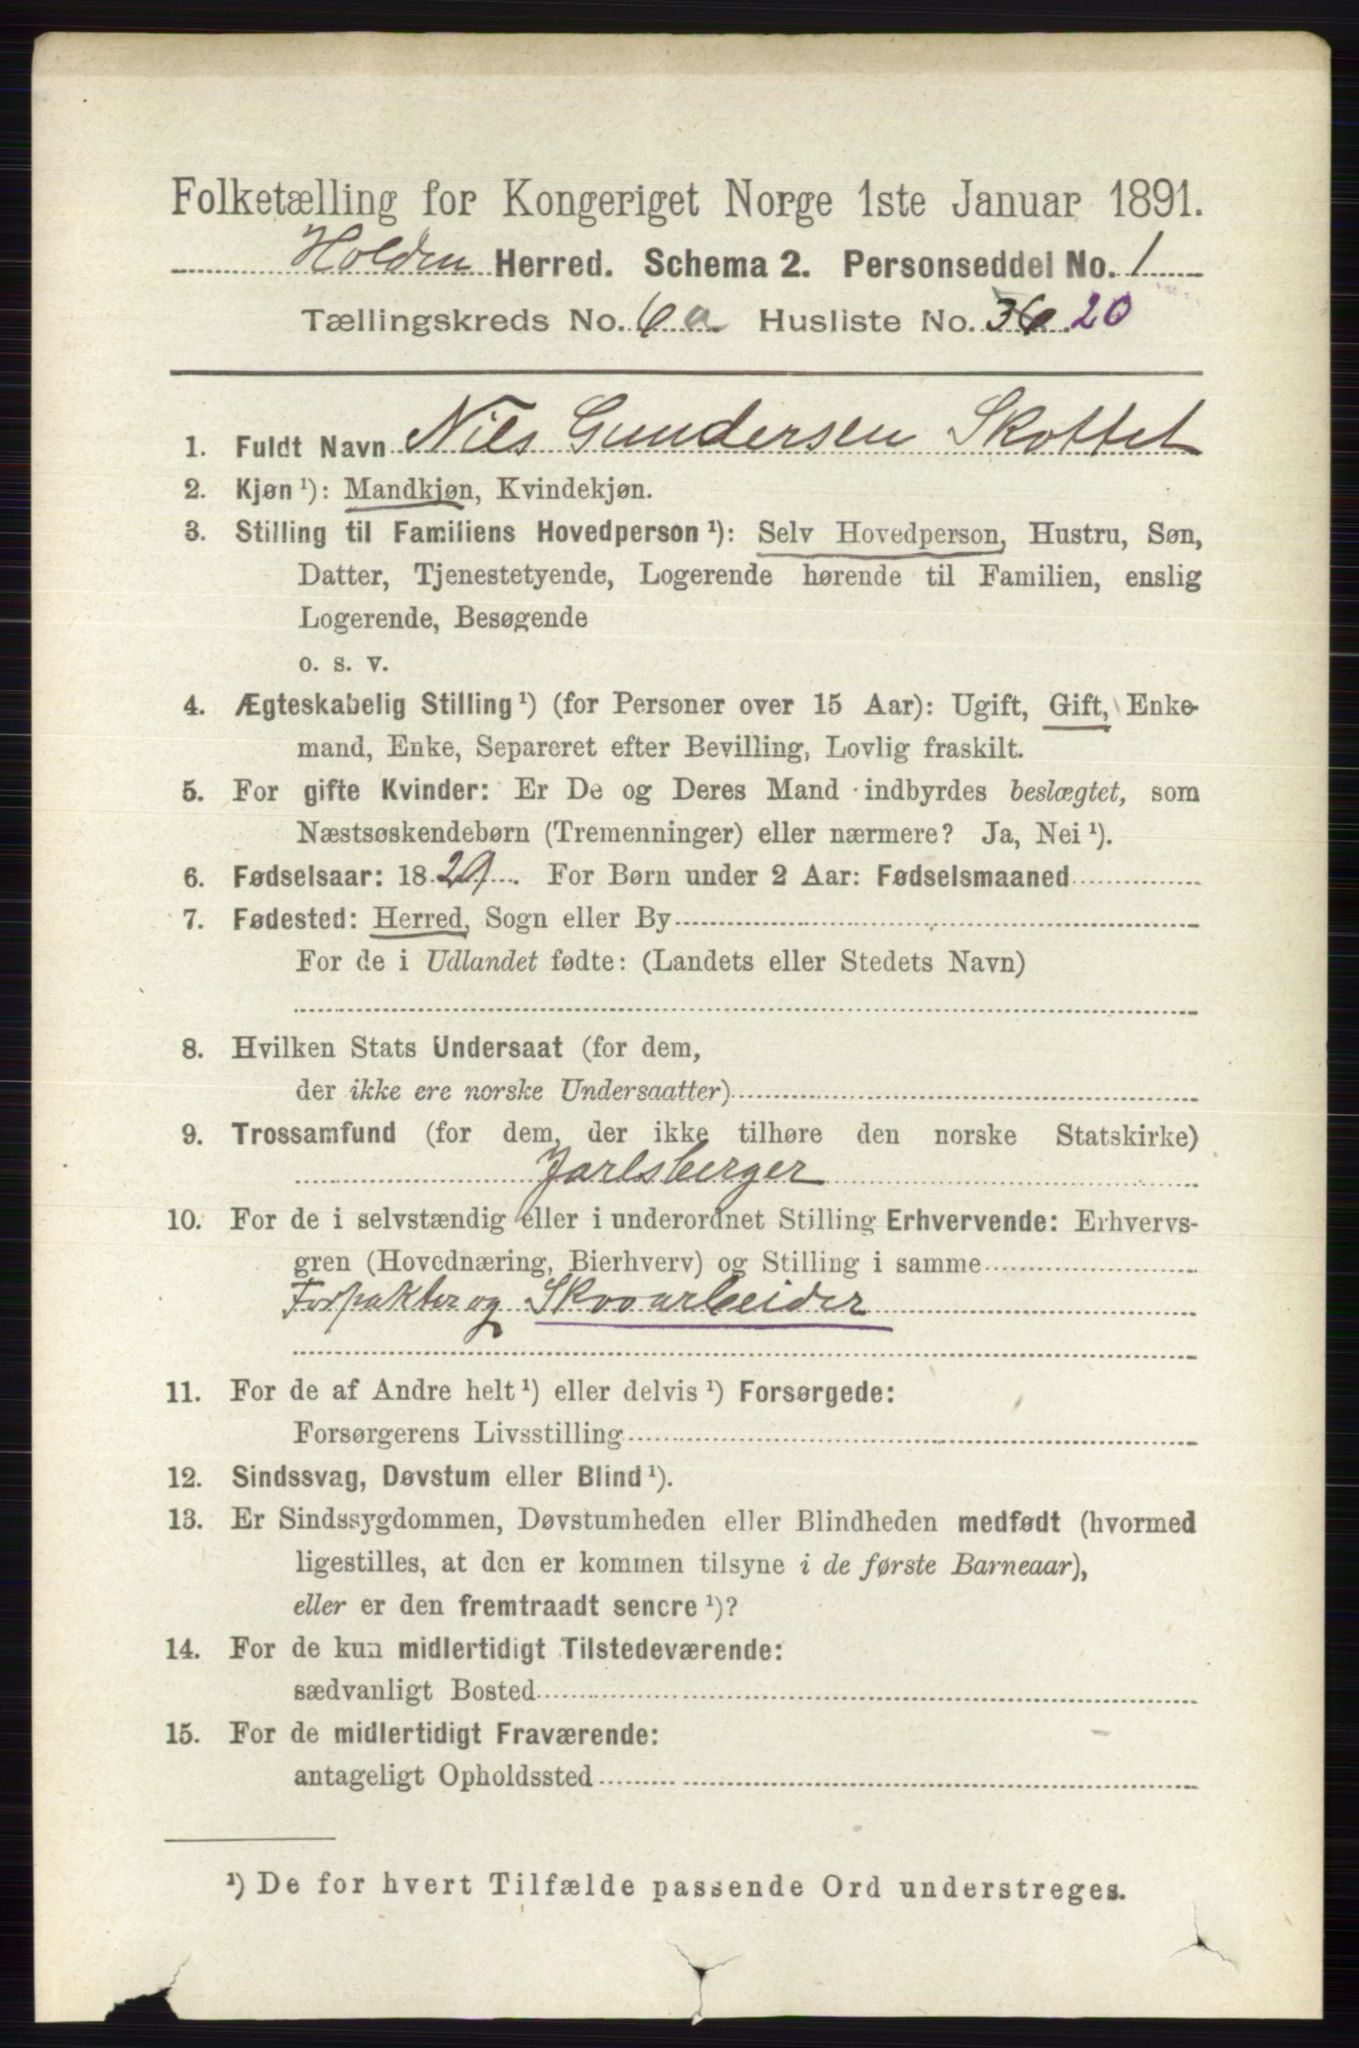 Folketælling for Kongeriget Norge 1ste Januar 1891.
Holden Herred. Schema 2. Personseddel No. 1
Tællingskreds No. 6 a Husliste No. 36 20
1. Fuldt Navn Nils Gundersen Skottet
2. Kjøn ¹): Mandkjøn, Kvindekjøn.
3. Stilling til Familiens Hovedperson ¹): Selv Hovedperson, Hustru, Søn,
Datter, Tjenestetyende, Logerende hørende til Familien, enslig
Logerende, Besøgende
o. s. v.
4. Ægteskabelig Stilling ¹) (for Personer over 15 Aar): Ugift, Gift, Enke-
mand, Enke, Separeret efter Bevilling, Lovlig fraskilt.
5. For gifte Kvinder: Er De og Deres Mand indbyrdes beslægtet, som
Næstsøskendebørn (Tremenninger) eller nærmere? Ja, Nei ¹).
6. Fødselsaar: 1829. For Børn under 2 Aar: Fødselsmaaned
7. Fødested: Herred, Sogn eller By
For de i Udlandet fødte: (Landets eller Stedets Navn)
8. Hvilken Stats Undersaat (for dem,
der ikke ere norske Undersaatter)
9. Trossamfund (for dem, der ikke tilhøre den norske Statskirke)
Jarlsberger
10. For de i selvstændig eller i underordnet Stilling Erhvervende: Erhvervs-
gren (Hovednæring, Bierhverv) og Stilling i samme
Forpakter og Skovarbeider
11. For de af Andre helt ¹) eller delvis ¹) Forsørgede:
Forsørgerens Livsstilling
12. Sindssvag, Døvstum eller Blind ¹).
13. Er Sindssygdommen, Døvstumheden eller Blindheden medfødt (hvormed
ligestilles, at den er kommen tilsyne i de første Barneaar),
eller er den fremtraadt senere ¹)?
14. For de kun midlertidigt Tilstedeværende:
sædvanligt Bosted
15. For de midlertidigt Fraværende:
antageligt Opholdssted
¹) De for hvert Tilfælde passende Ord understreges.